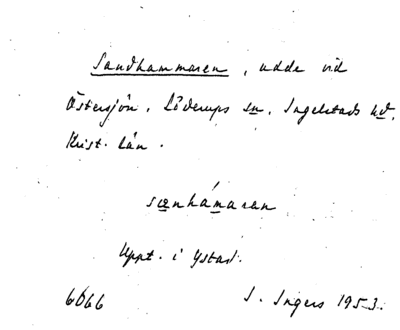 Sandhammaren, udde vid
Östersjön. Löderups sn. Ingelstads hd.
Krist. län.
sanhámaran
Uppt. i Ystad.
6066 I. Ingers 1953.